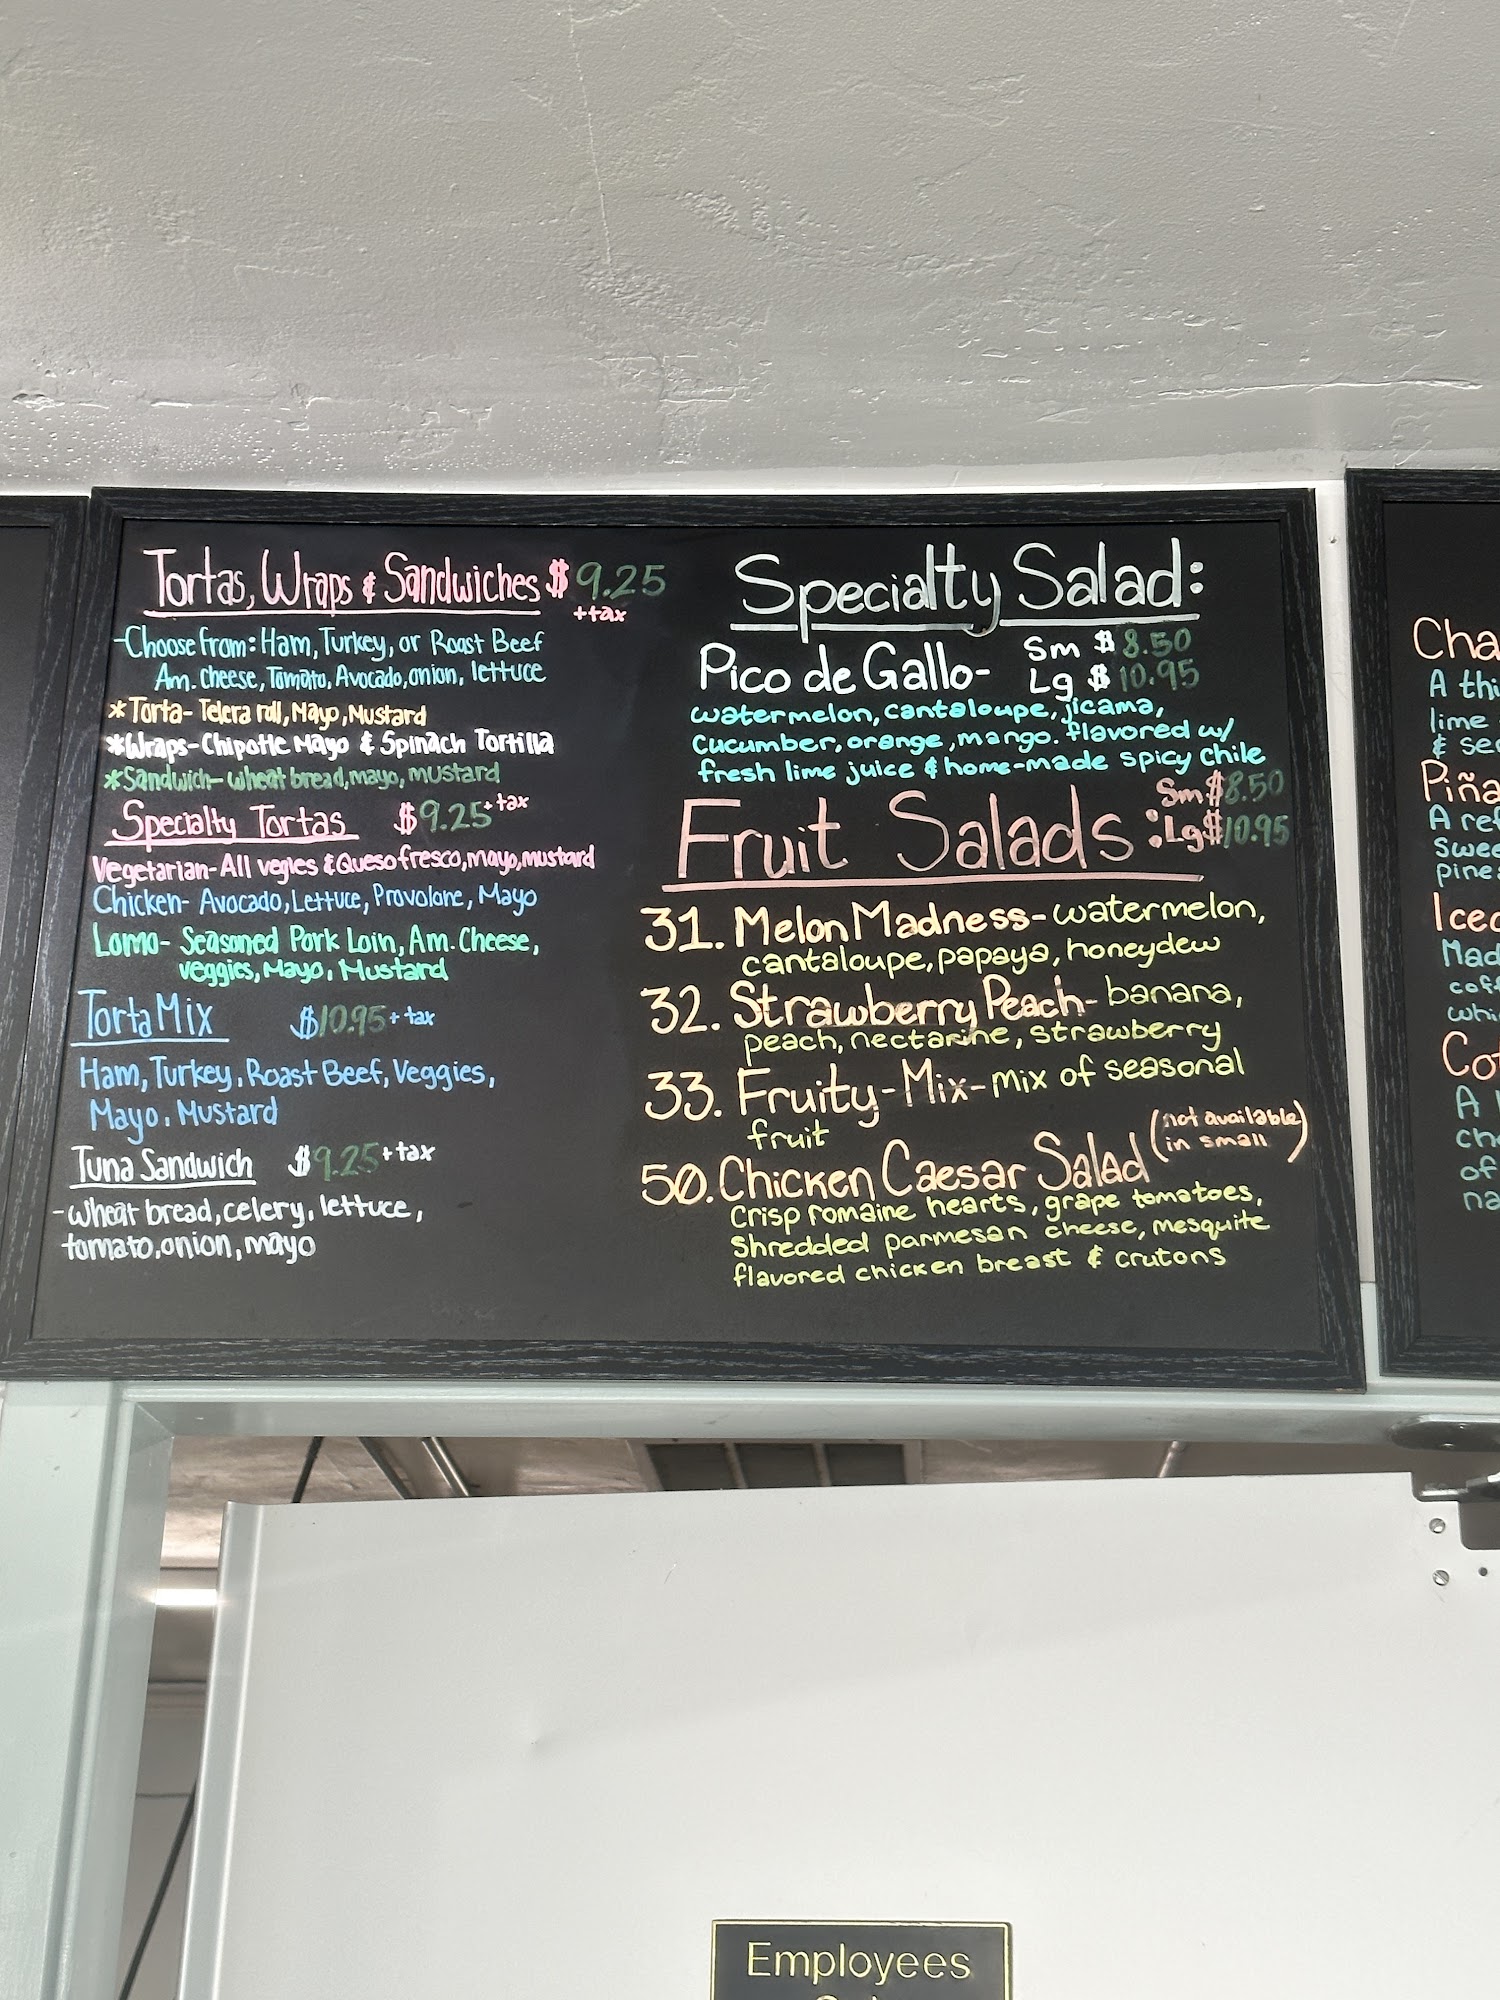 Tortas, Wraps & Sandwiches $9.25
+tax
-Choose from: Ham, Turkey, or Roast Beef
Am. cheese, Tomato, Avocado, onion, lettuce
*Torta- Telera roll, Mayo, Mustard
*Wraps-Chipotle Mayo & Spinach Tortilla
*Sandwich- wheat bread, mayo, mustard
Specialty Tortas $9.25+tax
Vegetarian-All vegies & Queso fresco, mayo, mustard
Chicken- Avocado, Lettuce, Provolone, Mayo
Lomo- Seasoned Pork Loin, Am. Cheese,
veggies, Mayo, Mustard
Torta Mix $10.95 + tax
Ham, Turkey, Roast Beef, Veggies,
Mayo, Mustard
Tuna Sandwich $9.25 + tax
-wheat bread, celery, lettuce,
tomato, onion, mayo
Specialty Salad:
Pico de Gallo- Sm $8.50
Lg $10.95
watermelon, cantaloupe, jicama,
cucumber, orange, mango. flavored w/
fresh lime juice & home-made spicy chile
Fruit Salads: Sm $8.50
Lg $10.95
31. Melon Madness- watermelon,
cantaloupe, papaya, honeydew
32. Strawberry Peach- banana,
peach, nectarine, strawberry
33. Fruity-Mix- mix of seasonal
fruit
50. Chicken Caesar Salad (not available
in small)
Crisp romaine hearts, grape tomatoes,
Shredded parmesan cheese, mesquite
flavored chicken breast & crutons
Cha
A thi
lime
& see
Piña
A ref
swee
pine
Iced
Mad
coff
whi
Cof
A
cho
of
na
Employees